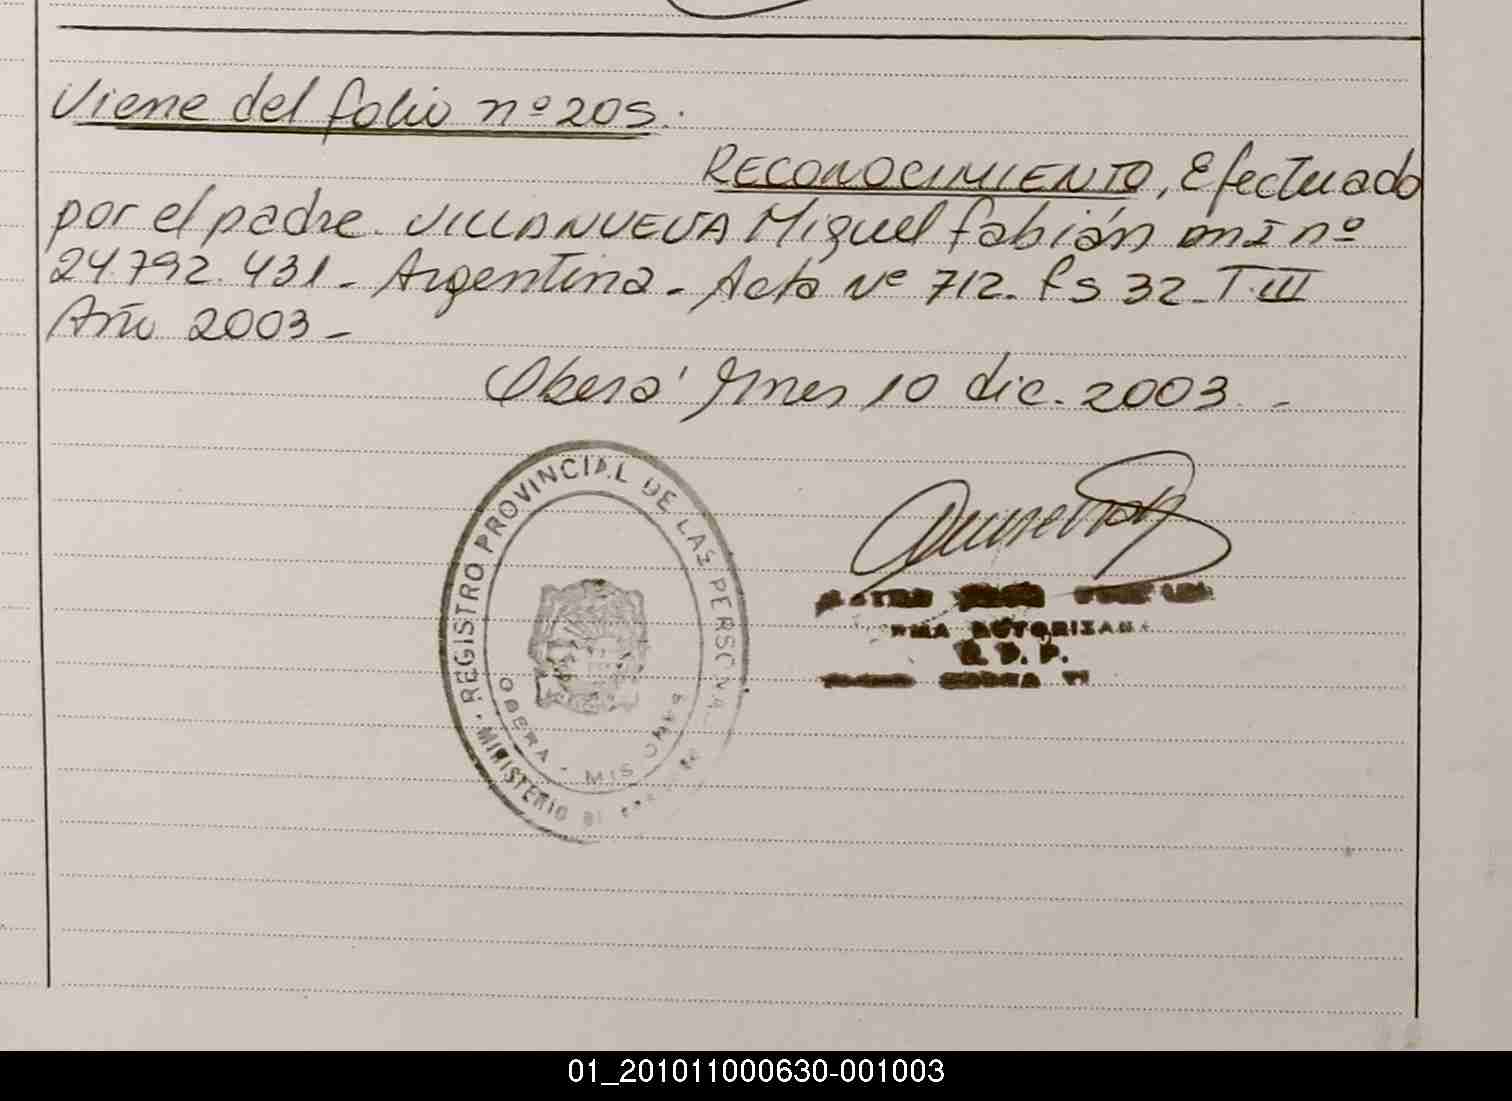 Viene del folio nº 205.
RECONOCIMIENTO, Efectuado
por el padre. VILLANUEVA Miguel Fabián M I nº
24.792.431 - Argentina - Acta Nº 712 - fs 32 - T. III
Año 2003 -
Oberá Mnes 10 dic. 2003 -
REGISTRO PROVINCIAL DE LAS PERSONAS
MINISTERIO
OBERA - MISIONES
FIRMA AUTORIZADA
R. P. P.
01_201011000630-001003